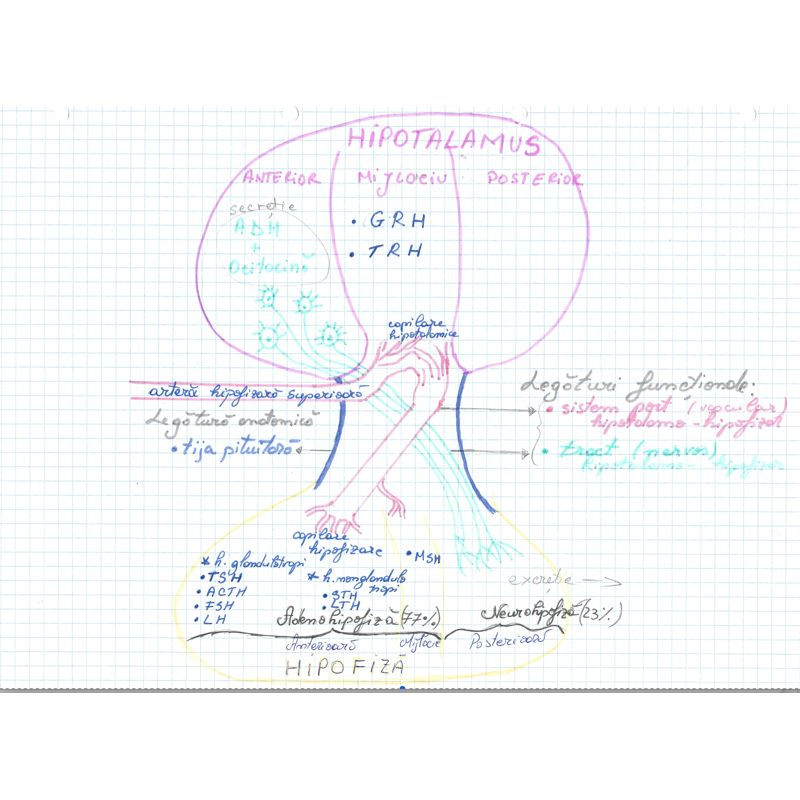 HIPOTALAMUS
ANTERIOR MIJLOCIU POSTERIOR
secreție
ADH
+
Ocitocină
• GRH
• TRH
capilare
hipotalamice
arteră hipofizară superioară
Legătură anatomică
• tija pituitară
Legături funcționale:
• sistem port (vascular)
hipotalamo-hipofizar
• tract (nervos)
hipotalamo-hipofizar
capilare
hipofizare
* h. glandulotropi
• TSH
• ACTH
• FSH
• LH
* h. nonglandulo
tropi
• STH
• LTH
• MSH
excreție →
Adenohipofiză (77%)
Neurohipofiză (23%)
Anterioară Mijlocie Posterioară
HIPOFIZĂ